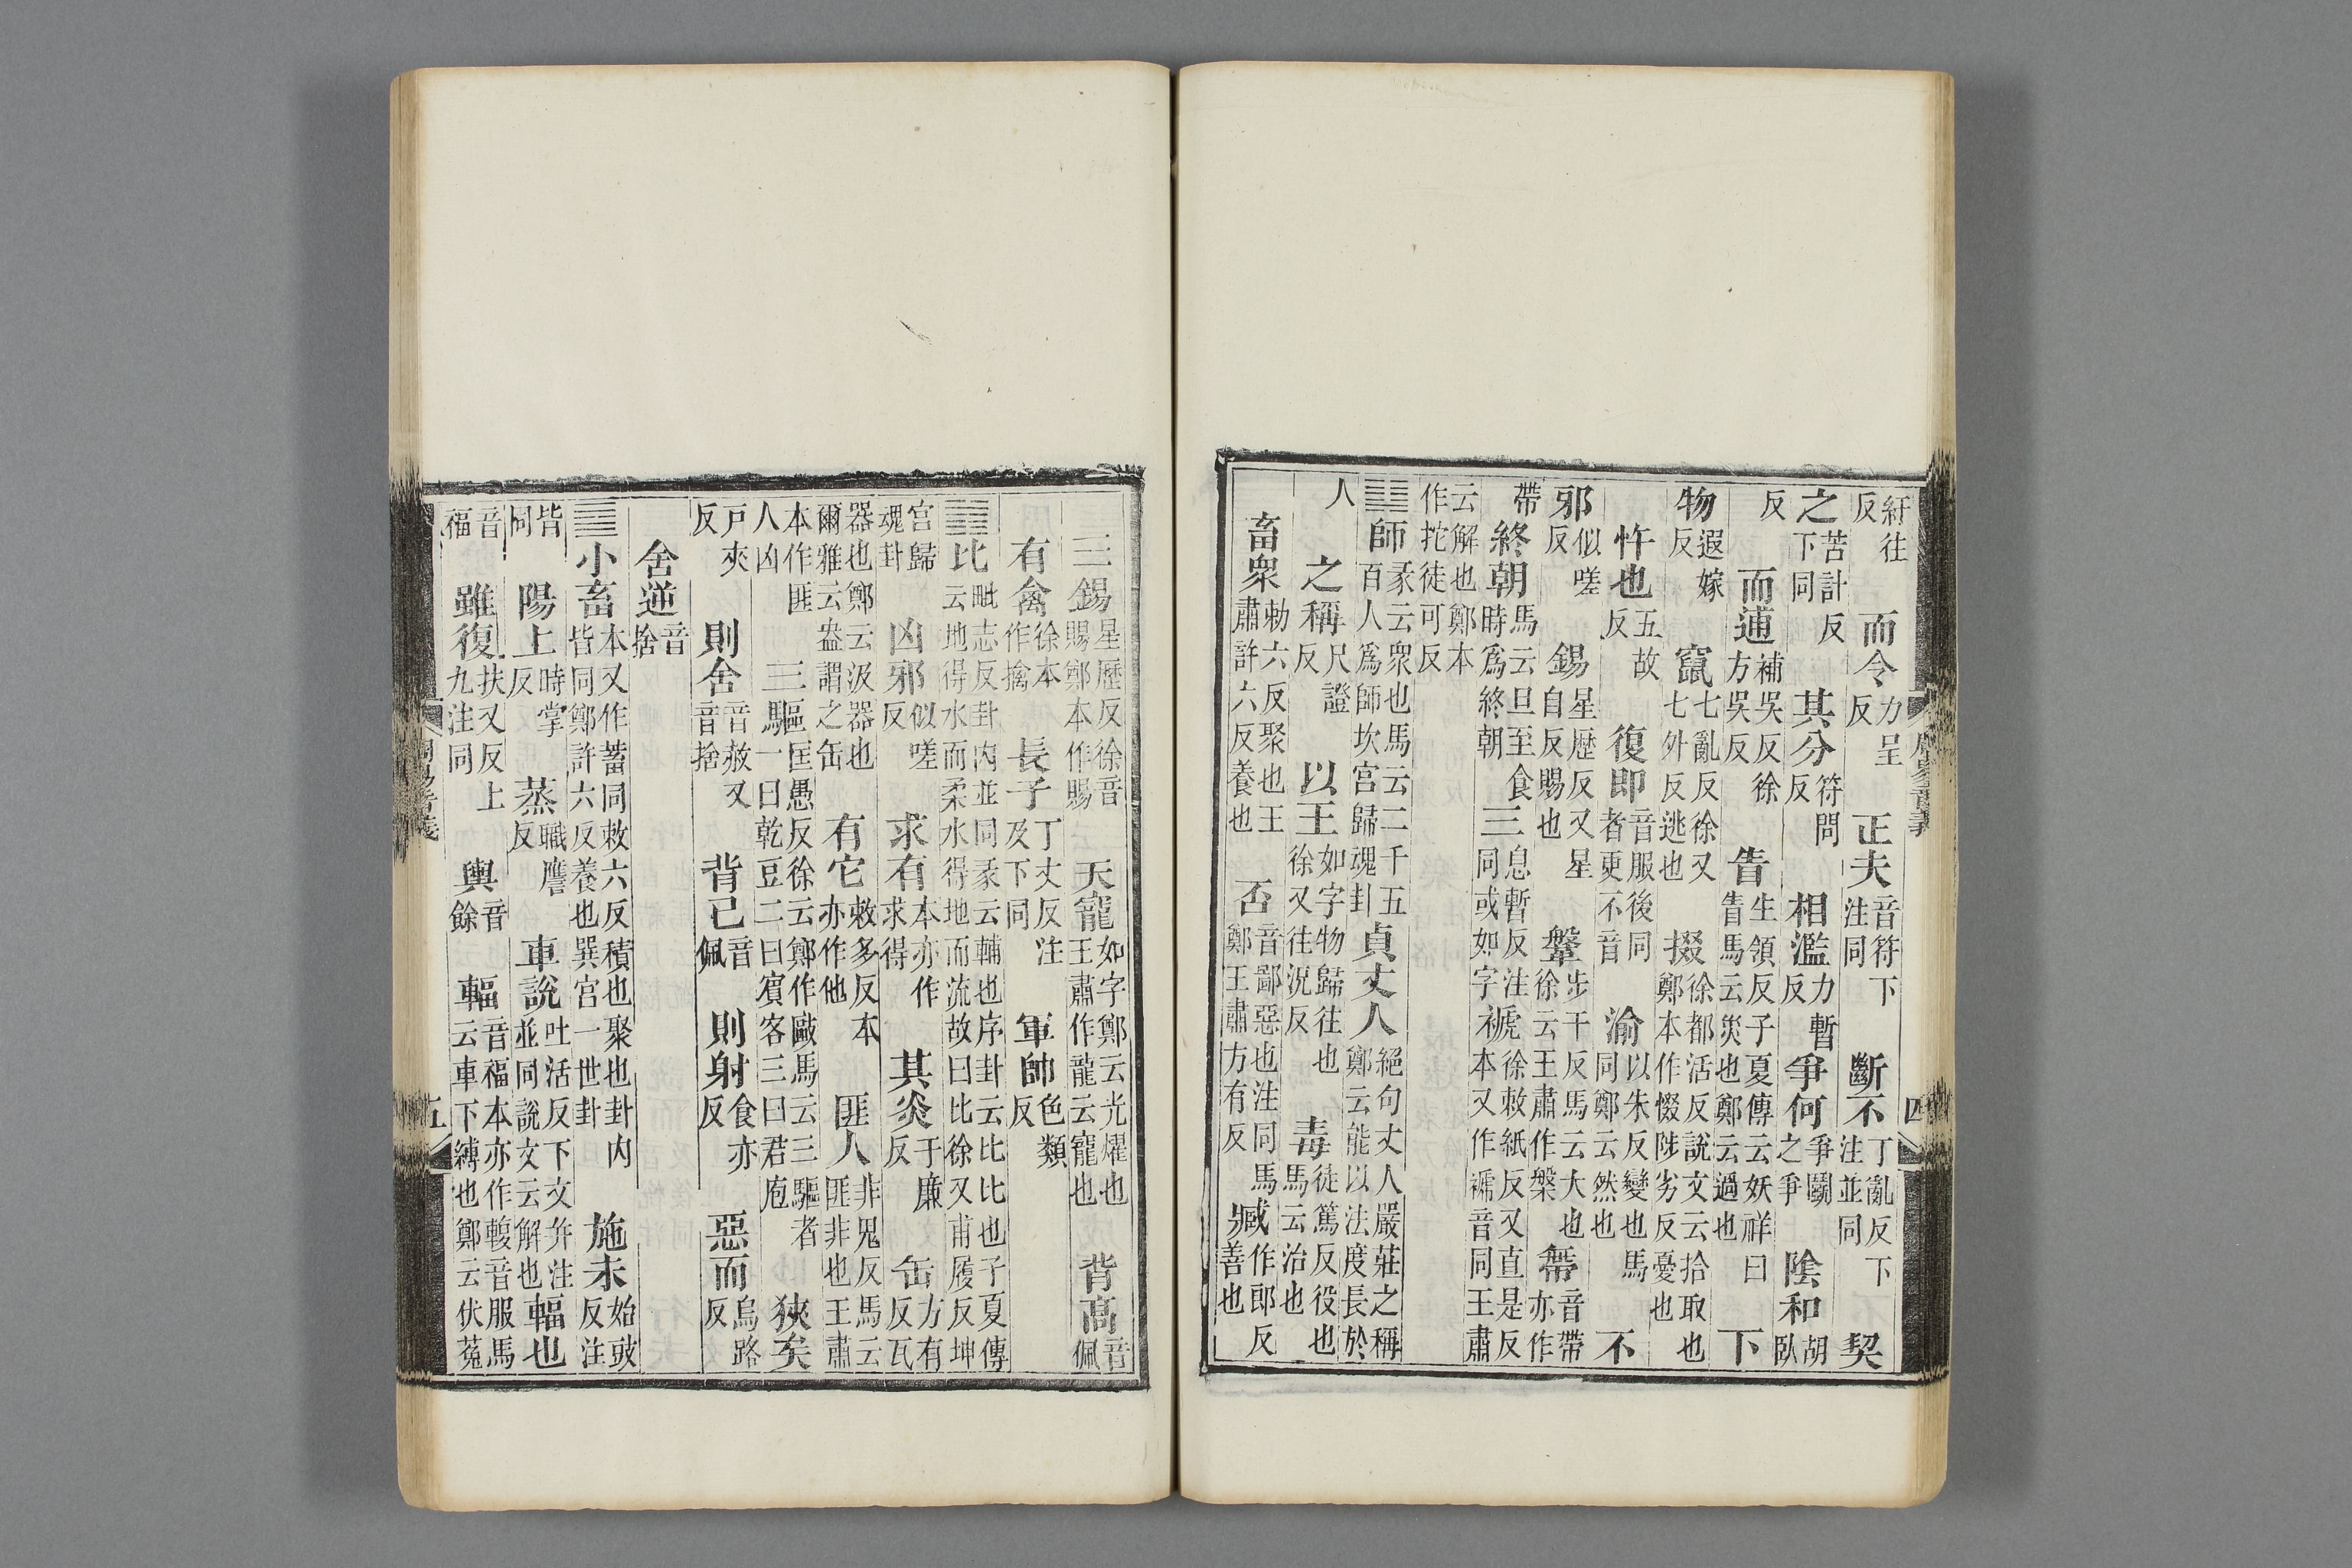 周易音義
四
紆往反 而令力呈反 正夫音符下注同 斷不丁亂反下注並同 契
之苦計反下同 其分符問反 相濫力暫反 爭何爭鬭之爭 陰和胡臥
反 而逋補吳反徐方吳反 眚生領反子夏傳云妖祥曰眚馬云災也鄭云過也 下
物遐嫁反 竄七亂反徐又七外反逃也 掇徐都活反說文云拾取也鄭本作惙陟劣反憂也
忤也五故反 復即音服後同者更不音 渝以朱反變也馬同鄭云然也 不
邪似嗟反 錫星歷反又星自反賜也 鞶步干反馬云大也徐云王肅作槃 帶音帶亦作
帶 終朝馬云旦至食時爲終朝 三息暫反注同或如字 褫徐敕紙反又直是反本又作褫音同王肅
云解也鄭本作拕徒可反
䷆師彖云衆也馬云二千五百人爲師坎宮歸魂卦 貞丈人絕句丈人嚴莊之稱鄭云能以法度長於
人 之稱尺證反 以王如字物歸往也徐又往況反 毒徒篤反役也馬云治也
畜衆勑六反聚也王肅許六反養也 否音鄙惡也注同馬鄭王肅方有反 臧作郎反善也
三錫星歷反徐音賜鄭本作賜 天寵如字鄭云光燿也王肅作龍云寵也 背高音佩
有禽徐本作擒 長子丁丈反注及下同 軍帥色類反
䷇比毗志反卦內並同彖云輔也序卦云比比也子夏傳云地得水而柔水得地而流故曰比徐又甫履反坤
宮歸魂卦 凶邪似嗟反 求有本亦作求得 其炎于廉反 缶方有反瓦
器也鄭云汲器也爾雅云盎謂之缶 有它敕多反本亦作他 匪人非鬼反馬云匪非也王肅
本作匪人凶 三驅匡愚反徐云鄭作毆馬云三驅者一曰乾豆二曰賓客三曰君庖 狹矣
戸夾反 則舍音赦又音捨 背己音佩 則射食亦反 惡而烏路反
舍逆音捨
䷈小畜本又作蓄同敕六反積也聚也卦內皆同鄭許六反養也巽宮一世卦 施未始豉反注
皆同 陽上時掌反 蒸職膺反 車說吐活反下文并注並同說文云解也 輻也
音福 雖復扶又反上九注同 輿音餘 輻音福本亦作輹音服馬云車下縛也鄭云伏菟
周易音義
五